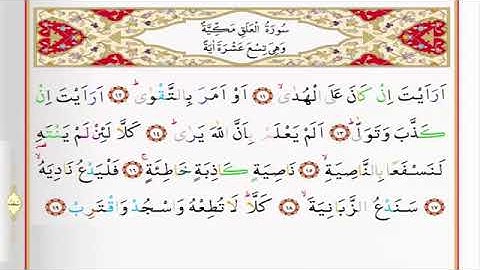 سُورَةُ الْعَلَقِ مَكِّيَّةٌ
وَهِيَ تِسْعَ عَشْرَةَ اٰيَةً
اَرَاَيْتَ اِنْ كَانَ عَلَى الْهُدٰىۙ ﴿١١﴾ اَوْ اَمَرَ بِالتَّقْوٰىۜ ﴿١٢﴾ اَرَاَيْتَ اِنْ
كَذَّبَ وَتَوَلّٰىۜ ﴿١٣﴾ اَلَمْ يَعْلَمْ بِاَنَّ اللّٰهَ يَرٰىۜ ﴿١٤﴾ كَلَّا لَئِنْ لَمْ يَنْتَهِ
لَنَسْفَعًا بِالنَّاصِيَةِۙ ﴿١٥﴾ نَاصِيَةٍ كَاذِبَةٍ خَاطِئَةٍۚ ﴿١٦﴾ فَلْيَدْعُ نَادِيَهُۙ
﴿١٧﴾ سَنَدْعُ الزَّبَانِيَةَۙ ﴿١٨﴾ كَلَّاۜ لَا تُطِعْهُ وَاسْجُدْ وَاقْتَرِبْ ﴿١٩﴾